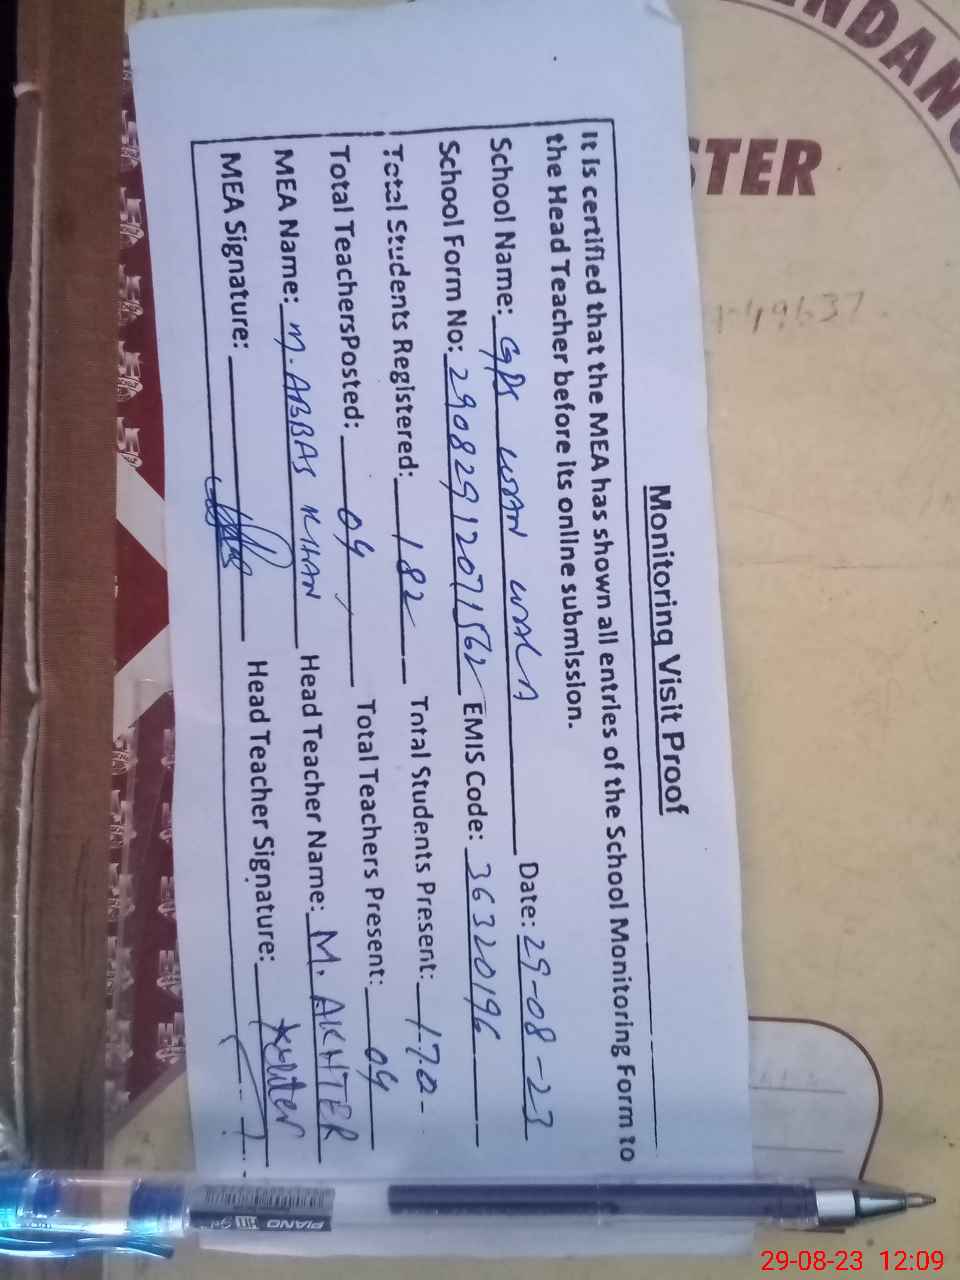 Monitoring Visit Proof
It is certified that the MEA has shown all entries of the School Monitoring Form to
the Head Teacher before its online submission.
School Name: GPS WAN WALA Date: 29-08-23
School Form No: 29082912071562 EMIS Code: 36320196
Total Students Registered: 182 Total Students Present: 170-
Total TeachersPosted: 04 Total Teachers Present: 04
MEA Name: M. ABBAS KHAN Head Teacher Name: M. AKHTER
MEA Signature: Head Teacher Signature: Akhter
NDANC
STER
49637
PIANO
29-08-23 12:09